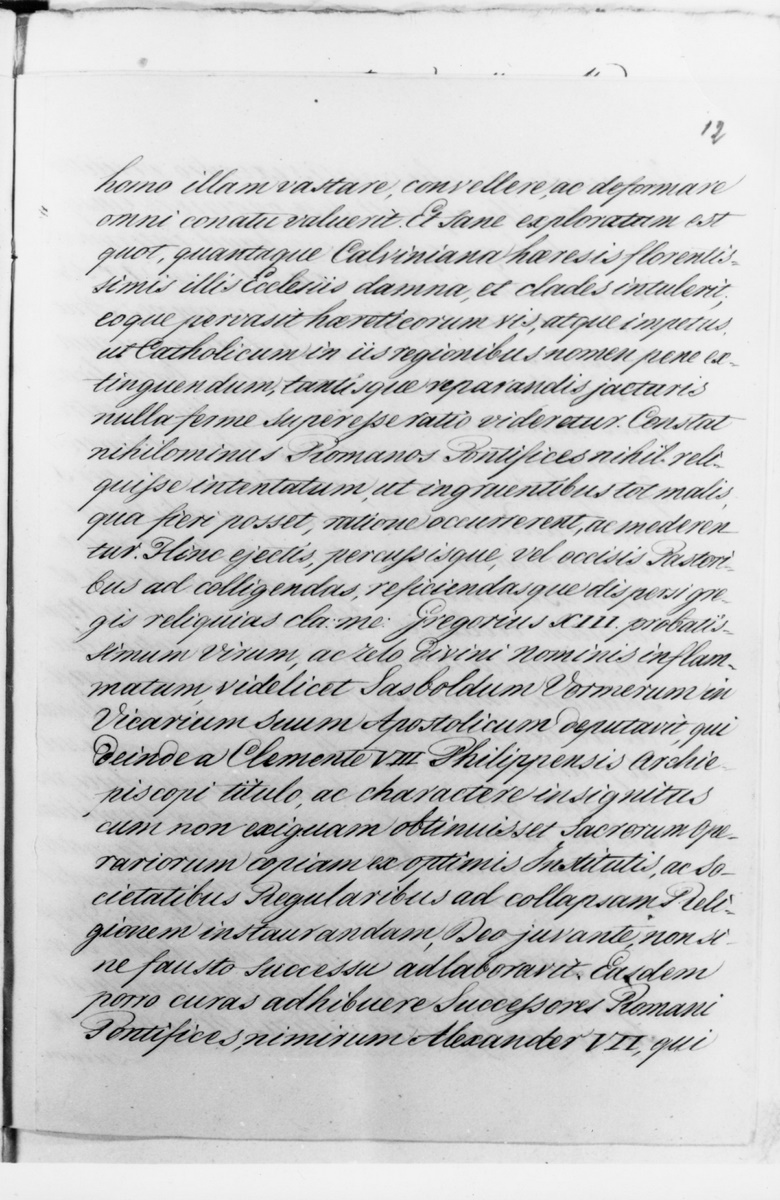 12
homo illam vastare, convellere, ac deformare
omni conatu valuerit. Et sane exploratum est
quot, quantaque Calviniana hæresis florentis-
simis illis Ecclesiis damna, et clades intulerit,
eoque pervasit hæreticorum vis, atque impetus,
ut Catholicum in iis regionibus nomen pene ex-
tinguendum, tantisque reparandis jacturis
nulla ferme superesse ratio videratur. Constat
nihilominus Romanos Pontifices nihil reli-
quisse intentatum, ut ingruentibus tot malis,
qua fieri posset, ratione occurrerent, ac mederen
tur. Hinc ejectis, percussisque, vel occisis Pastori-
bus ad colligendas, reficiendasque dispersi gre-
gis reliquias cla: me: Gregorius XIII, probatis-
simum virum, ac zelo Divini Nominis inflam-
matum, videlicet Sasboldum Vormerum in
Vicarium suum Apostolicum deputavit, qui
deinde a Clemente VIII Philippensis Archie-
piscopi titulo, ac charactere insignitus
cum non exiguam obtinuisset Sacrorum Ope-
rariorum copiam ex optimis Institutis, ac So-
cietatibus Regularibus ad collapsam Reli-
gionem instaurandam, Deo juvante, non si-
ne fausto successu adlaboravit. Easdem
porro curas adhibuere Successores Romani
Pontifices, nimirum Alexander VII, qui